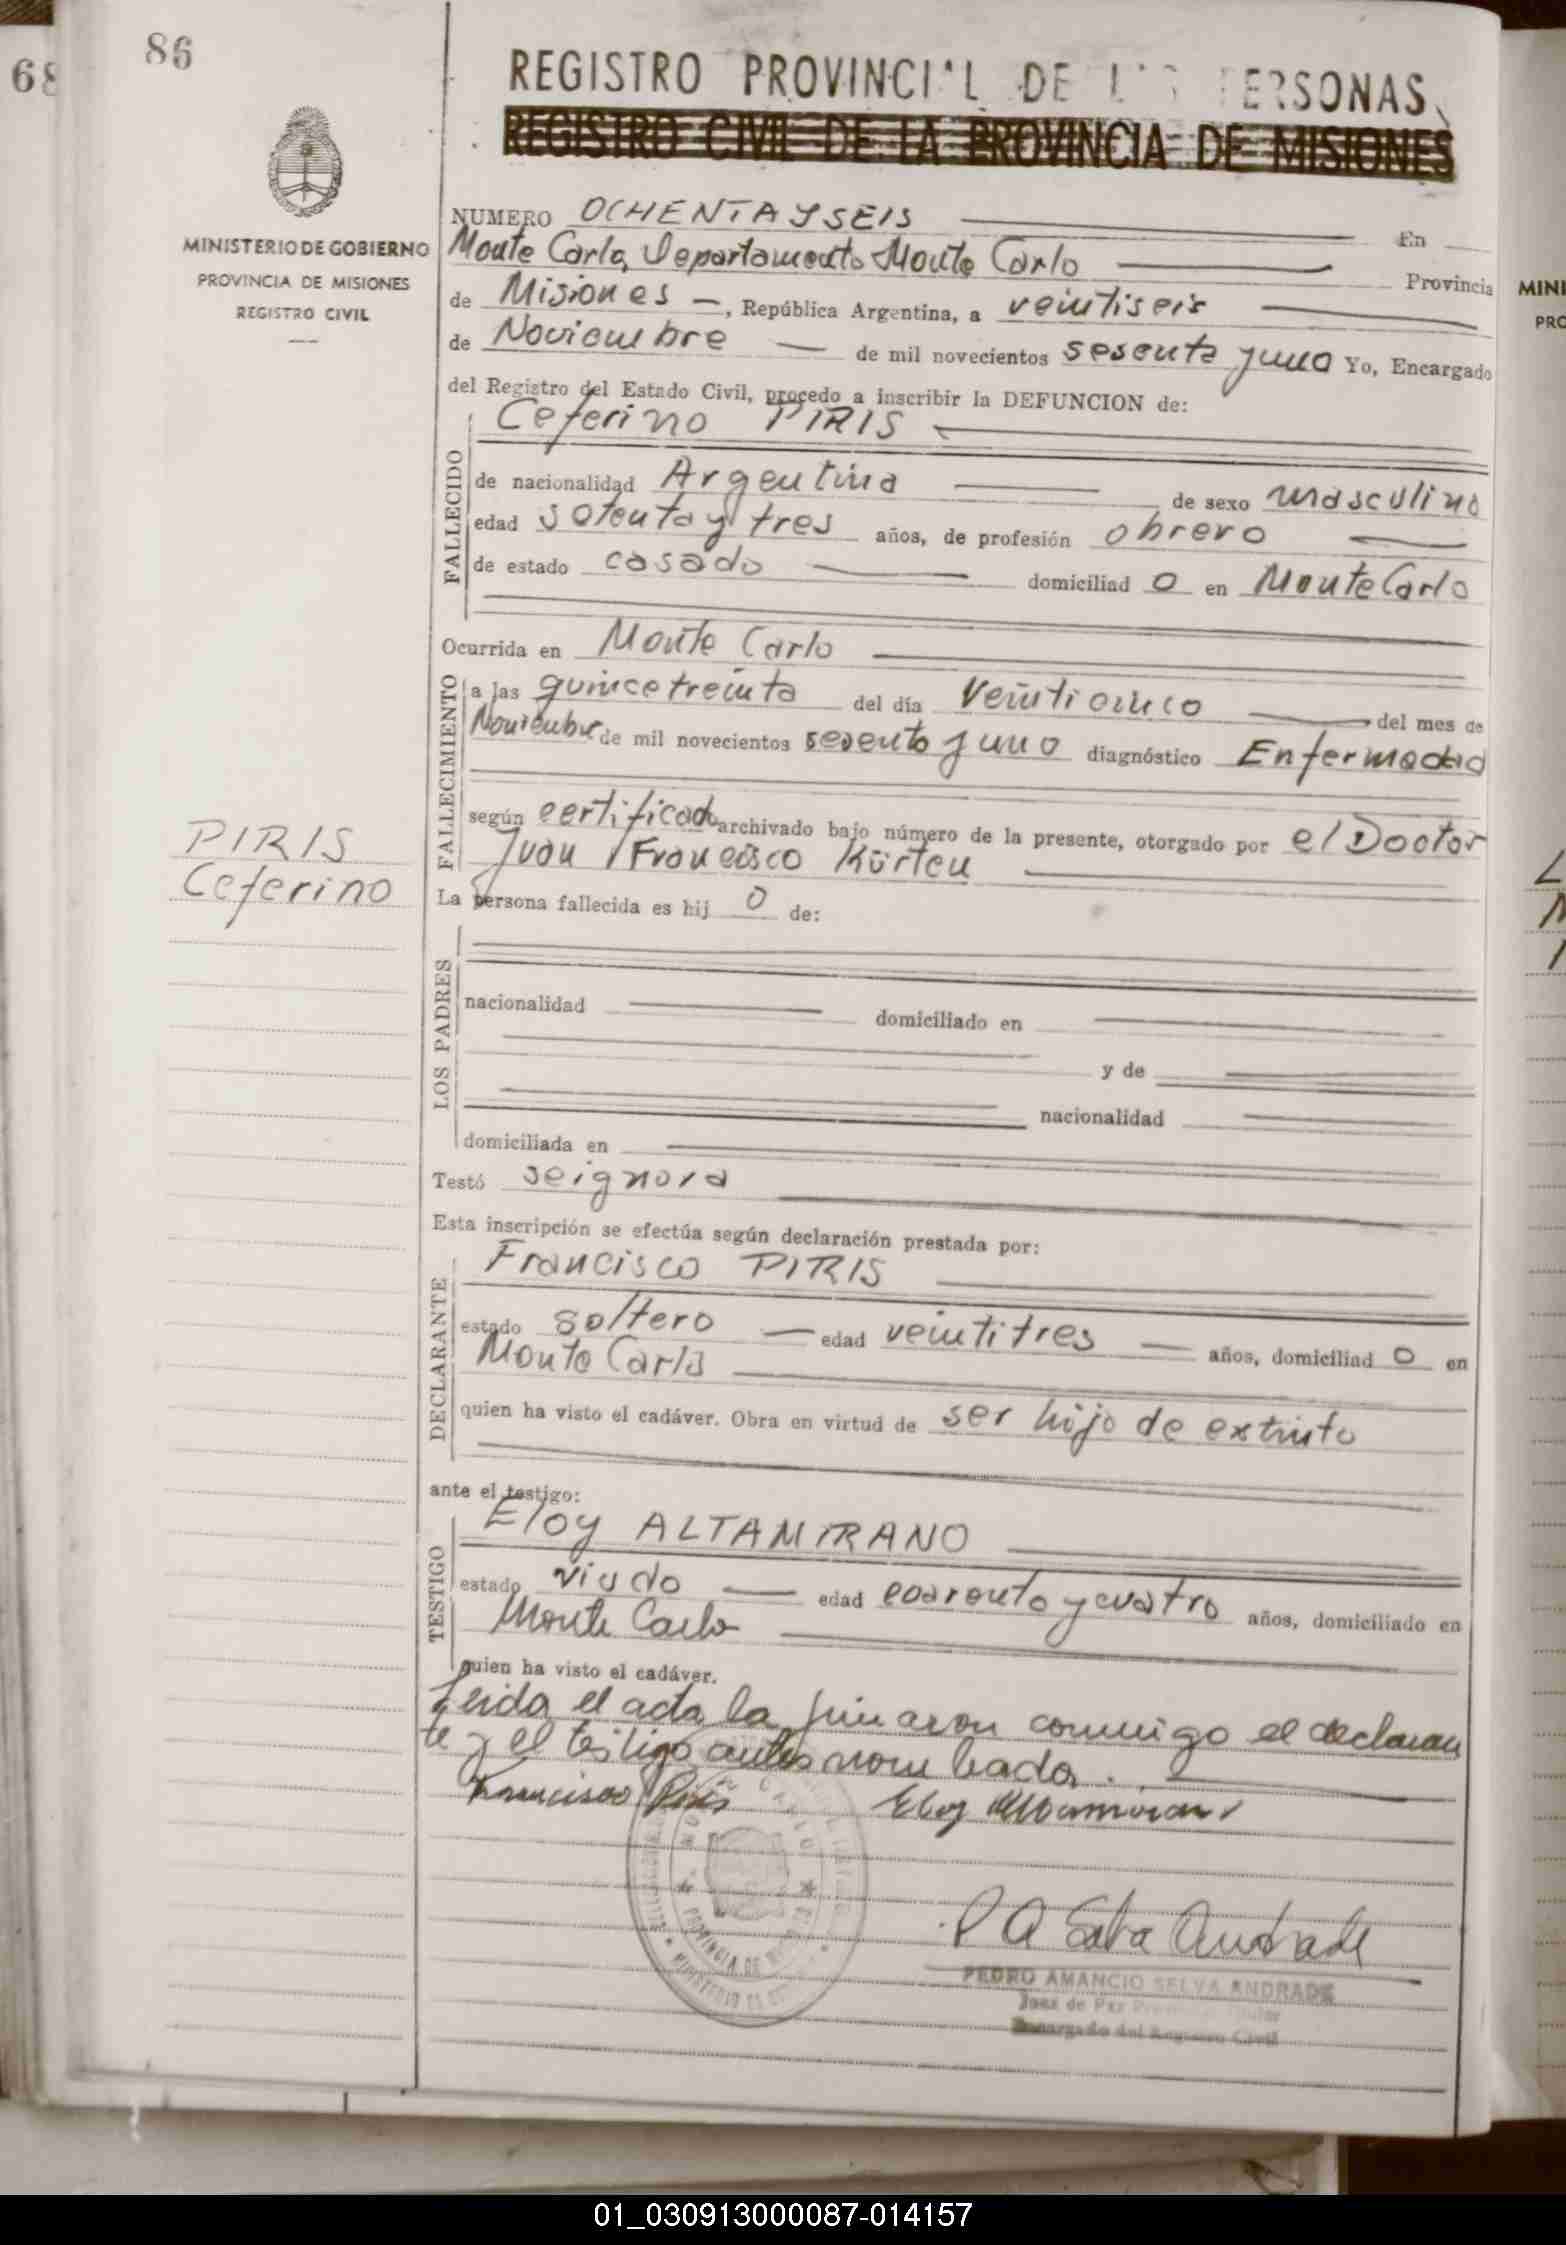 86
68
REGISTRO PROVINCIAL DE LAS PERSONAS
REGISTRO CIVIL DE LA PROVINCIA DE MISIONES
MINISTERIO DE GOBIERNO
PROVINCIA DE MISIONES
REGISTRO CIVIL
NUMERO OCHENTA Y SEIS En
Monte Carlo, Departamento Monte Carlo Provincia
de Misiones, República Argentina, a veintiseis
de Noviembre de mil novecientos sesenta y uno Yo, Encargado
del Registro del Estado Civil, procedo a inscribir la DEFUNCION de:
FALLECIDO
Ceferino PIRIS
de nacionalidad Argentina de sexo masculino
edad setenta y tres años, de profesión obrero
de estado casado domiciliad o en Monte Carlo
Ocurrida en Monte Carlo
FALLECIMIENTO
a las quince treinta del día Veinticinco del mes de
Noviembre de mil novecientos sesenta y uno diagnóstico Enfermedad
según certificado archivado bajo número de la presente, otorgado por el Doctor
Juan Francisco Kürten
PIRIS
Ceferino
La persona fallecida es hij o de:
LOS PADRES
nacionalidad domiciliado en
y de
nacionalidad
domiciliada en
Testó se ignora
Esta inscripción se efectúa según declaración prestada por:
DECLARANTE
Francisco PIRIS
estado soltero edad veintitres años, domiciliad o en
Monte Carlo
quien ha visto el cadáver. Obra en virtud de ser hijo de extinto
ante el testigo:
TESTIGO
Eloy ALTAMIRANO
estado viudo edad coarenta y cuatro años, domiciliado en
Monte Carlo
quien ha visto el cadáver.
Leida el acta la firmaron conmigo el declaran
te y el testigo antes nombrado.
Francisco Piris Eloy Altamirano
P A Selva Andrade
PEDRO AMANCIO SELVA ANDRADE
Juez de Paz
Encargado del Registro Civil
PROVINCIA DE
MINI
PRO
01_030913000087-014157